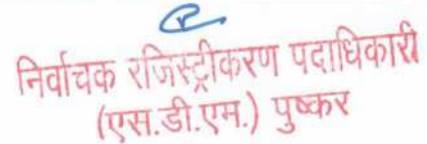 निर्वाचक रजिस्ट्रीकरण पदाधिकारी
(एस.डी.एम.) पुष्कर